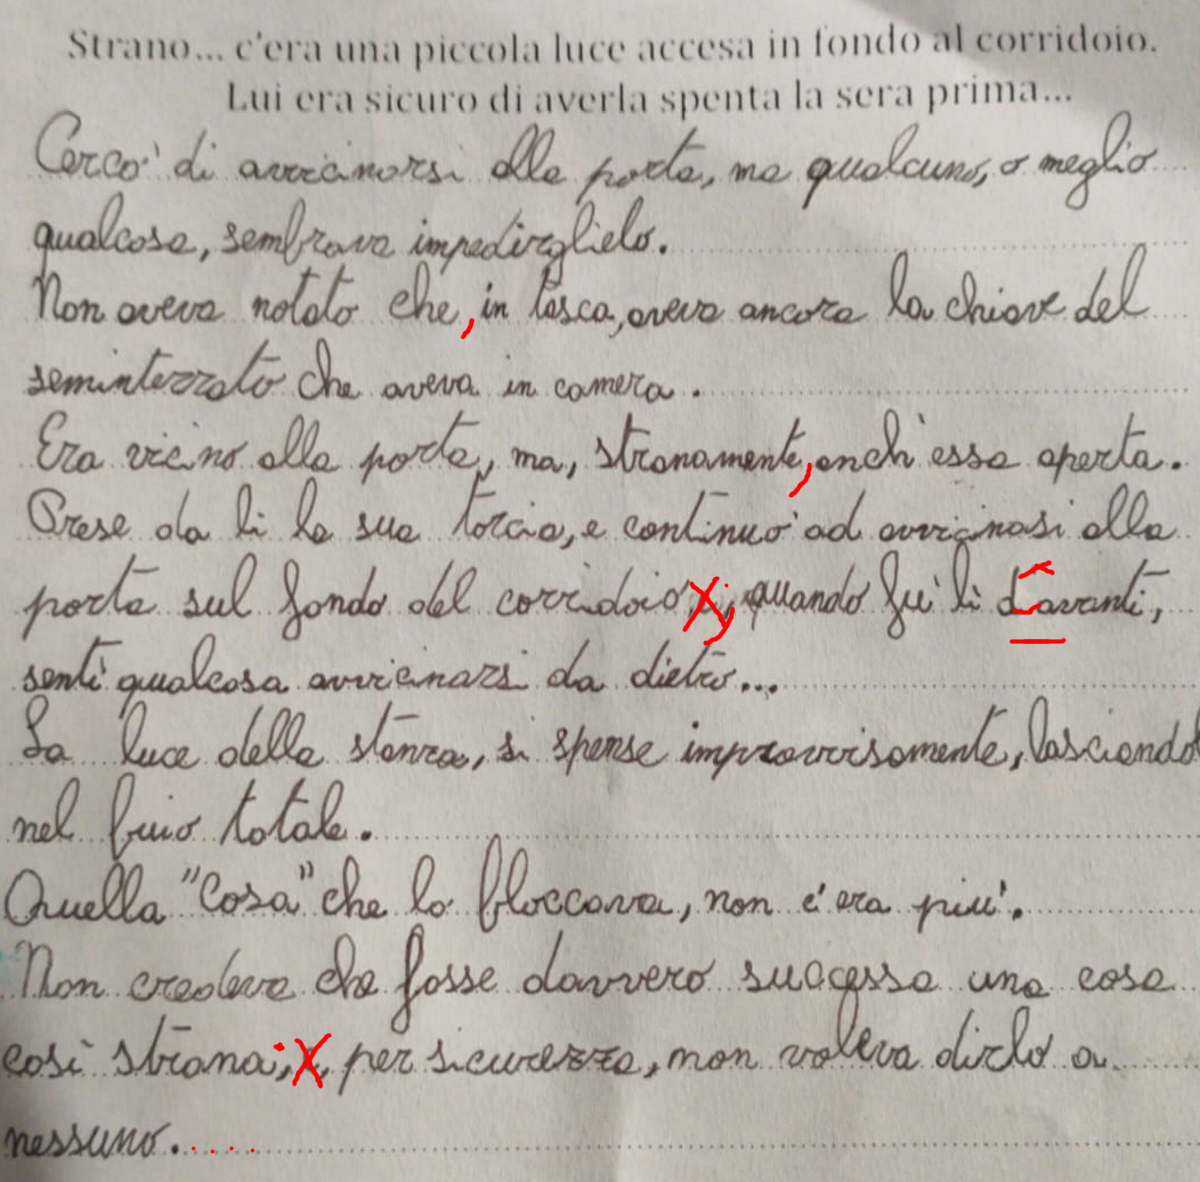 Strano... c'era una piccola luce accesa in fondo al corridoio.
Lui era sicuro di averla spenta la sera prima...
Cercò di avvicinarsi alla porta, ma qualcuno, o meglio
qualcosa, sembrava impedirglielo.
Non aveva notato che, in tasca, aveva ancora la chiave del
seminterrato che aveva in camera.
Era vicino alla porta, ma, stranamente, anch'essa aperta.
Prese da lì la sua torcia, e continuò ad avvicinasi alla
porta sul fondo del corridoio; quando fù lì davanti,
sentì qualcosa avvicinarsi da dietro...
La luce della stanza, si spense improvvisamente, lasciando
nel buio totale.
Quella "Cosa" che lo bloccava, non c'era più.
Non credeva che fosse davvero successa una cosa
così strana; per sicurezza, non voleva dirlo a
nessuno.....